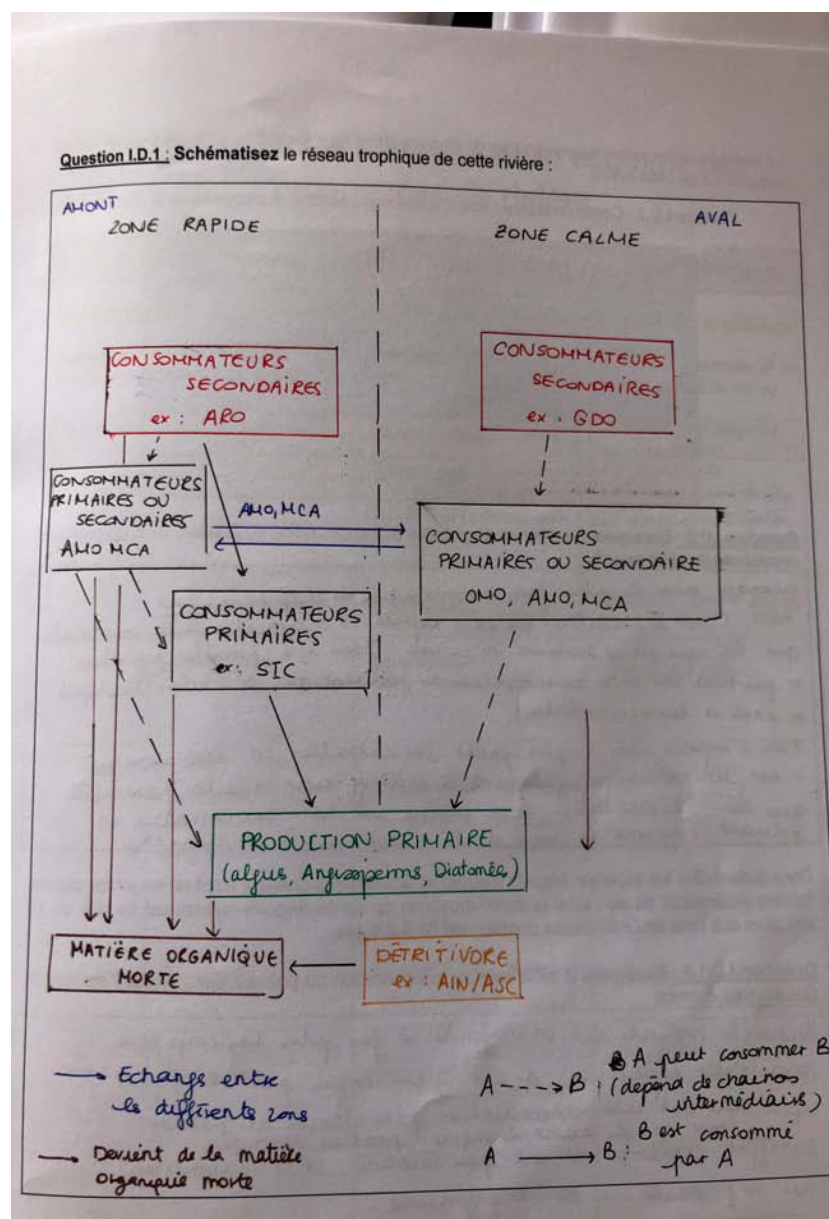 Question I.D.1 : Schématisez le réseau trophique de cette rivière :
AMONT
ZONE RAPIDE
AVAL
ZONE CALME
CONSOMMATEURS
SECONDAIRES
ex : ARO
CONSOMMATEURS
SECONDAIRES
ex : GDO
CONSOMMATEURS
PRIMAIRES OU
SECONDAIRES
AMO MCA
AMO, MCA
CONSOMMATEURS
PRIMAIRES OU SECONDAIRE
OMO, AMO, MCA
CONSOMMATEURS
PRIMAIRES
ex: SIC
PRODUCTION PRIMAIRE
(algues, Angiosperms, Diatomée)
MATIÈRE ORGANIQUE
MORTE
DÉTRITIVORE
ex : AIN/ASC
→ Echanges entre
les différents zons
→ Devient de la matière
organique morte
A ---> B : A peut consommer B
(dépend de chainos
intermédiairs)
A → B : B est consommé
par A